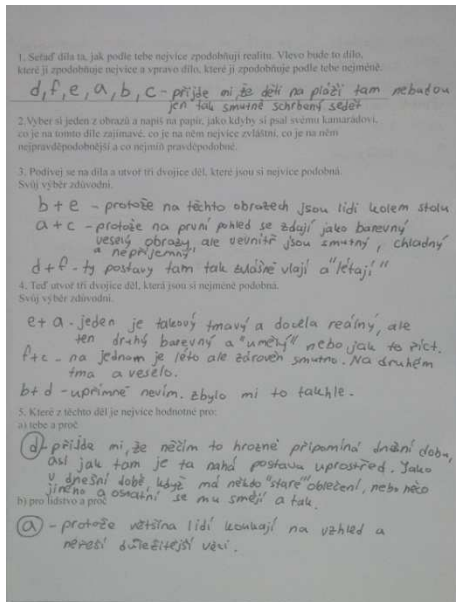 1. Seřaď díla ta, jak podle tebe nejvíce zpodobňují realitu. Vlevo bude to dílo,
které ji zpodobňuje nejvíce a vpravo dílo, které ji zpodobňuje podle tebe nejméně.
d, f, e, a, b, c - přijde mi, že děti na pláži tam nebudou
jen tak smutně schrbený sedět
2.Vyber si jeden z obrazů a napiš na papír, jako kdyby si psal svému kamarádovi,
co je na tomto díle zajímavé, co je na něm nejvíce zvláštní, co je na něm
nejpravděpodobnější a co nejmíň pravděpodobné.
3. Podívej se na díla a utvoř tři dvojice děl, které jsou si nejvíce podobná.
Svůj výběr zdůvodni.
b + e - protože na těchto obrazech jsou lidi kolem stolu
a + c - protože na první pohled se zdají jako barevný
veselý obrazy, ale uvnitř jsou smutný, chladný
a nepříjemný
d + f - ty postavy tam tak zvláštně vlají a "létají"
4. Teď utvoř tři dvojice děl, která jsou si nejméně podobná.
Svůj výběr zdůvodni.
e + a - jeden je takový tmavý a docela reálný, ale
ten druhý barevný a "umělý" nebo jak to říct.
f + c - na jednom je léto ale zároveň smutno. Na druhém
tma a veselo.
b + d - upřímně nevím. zbylo mi to takhle.
5. Které z těchto děl je nejvíce hodnotné pro:
a) tebe a proč
d - přijde mi, že něčím to hrozně připomíná dnešní dobu,
asi jak tam je ta nahá postava uprostřed. Jako
v dnešní době, když má někdo "staré" oblečení, nebo něco
jiného a ostatní se mu smějí a tak.
b) pro lidstvo a proč
a - protože většina lidí koukají na vzhled a
neřeší důležitější věci.